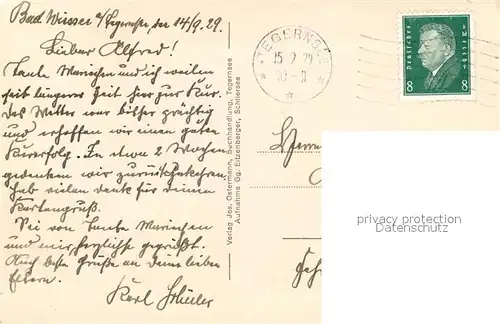 Bad Wiessee a/Tegernsee, den 14/9.29.
Lieber Alfred!
Tante Mariechen und ich weilen
seit längerer Zeit hier zur Kur.
Das Wetter war bisher prächtig
und erhoffen wir einen guten
Kurerfolg. In etwa 2 Wochen
gedenken wir zurückzukehren.
Hab vielen Dank für deinen
Kartengruß.
Sei von Tante Mariechen
und mir herzlichst gegrüßt.
Auch beste Grüße an deine lieben
Eltern.
Karl
Verlag Jos. Ostermann, Buchhandlung, Tegernsee
Aufnahme Gg. Eitzenberger, Schliersee
TEGERNSEE
Deutsches Reich
8 8
Herrn
privacy protection
Datenschutz